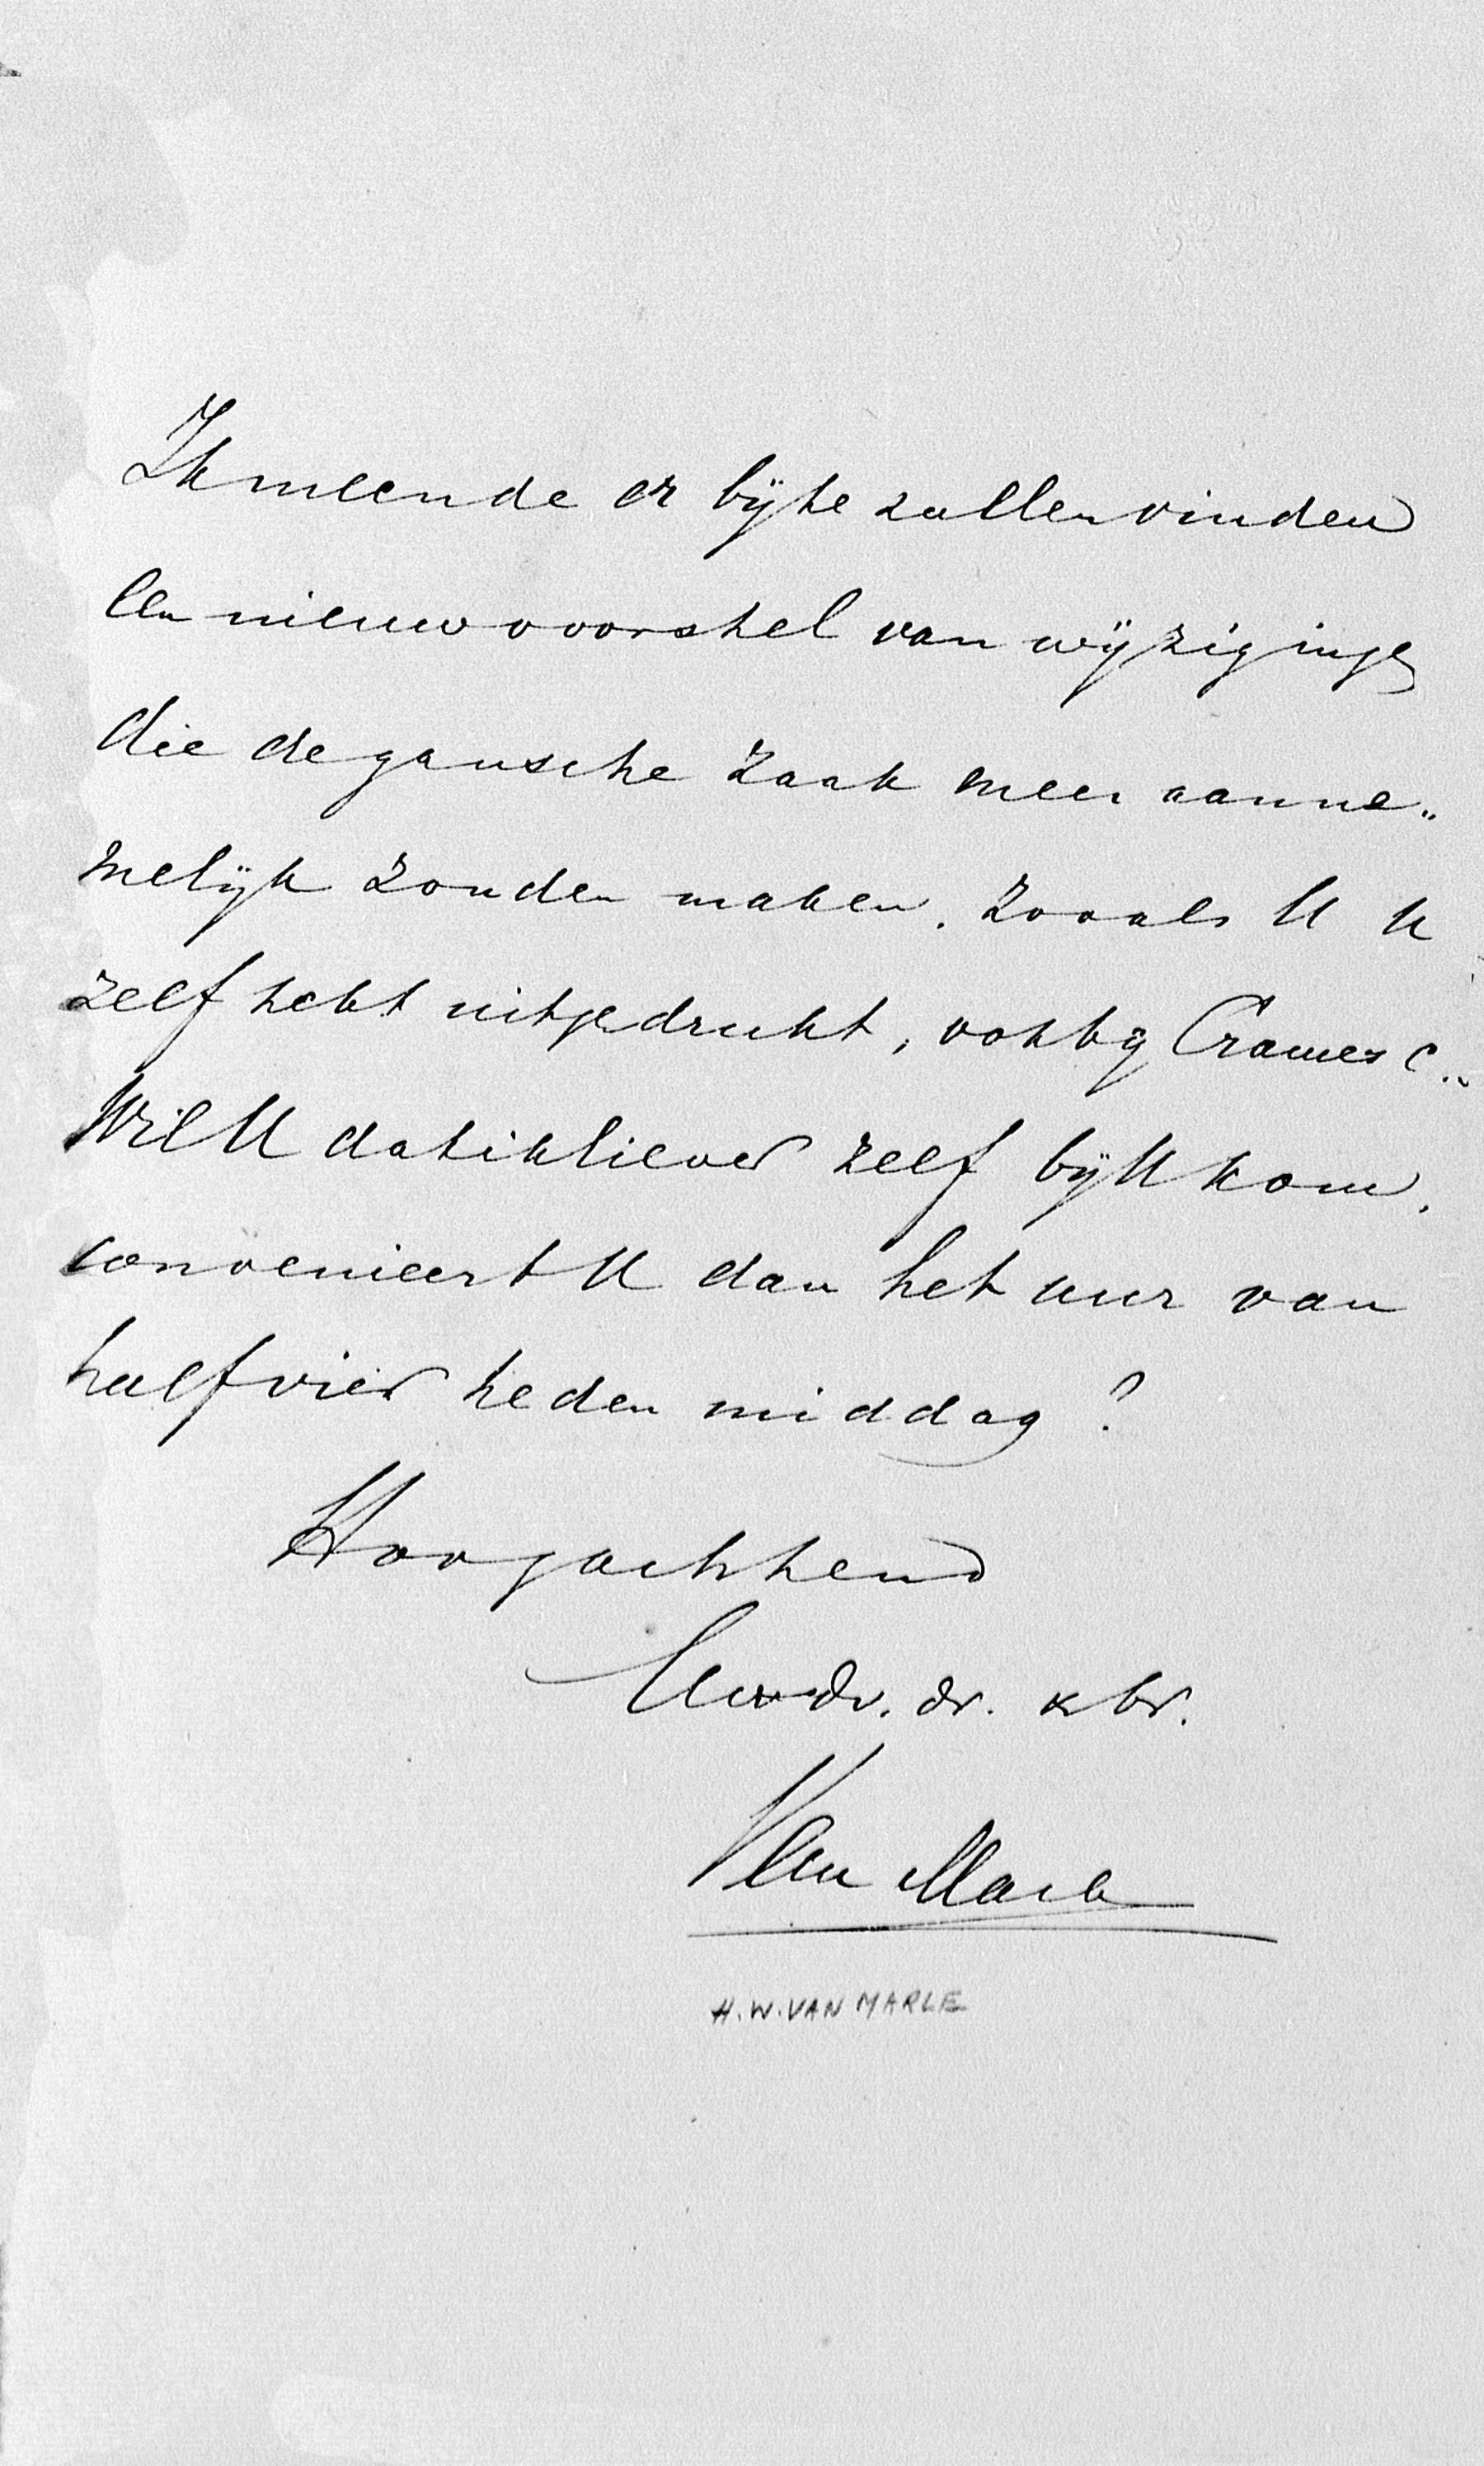 Ik meende er bij te zullen vinden
een nieuw voorstel van wijzigingen
die de gansche zaak meer aanne„
melijk zouden maken. Zooals U u
zelf hebt uitgedrukt, ook bij Cramer c.„
Wil U dat ik liever zelf bij U kom,
convenieert U dan het uur van
half vier heden middag?
Hoogachtend
Uwdv. dr. & br.
Van Marle
H.W. VAN MARLE